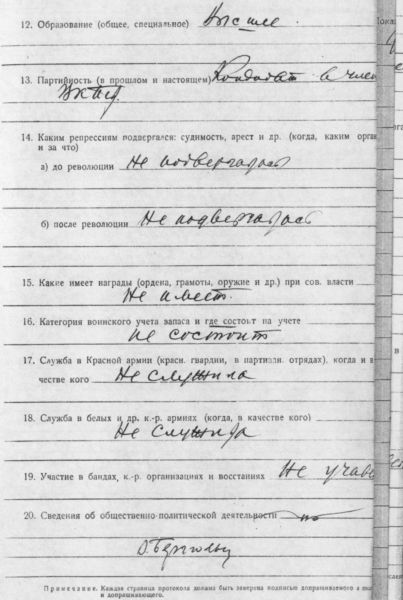 12. Образование (общее, специальное) Высшее
13. Партийность (в прошлом и настоящем) Кандидат в член
ВКП(б).
14. Каким репрессиям подвергался: судимость, арест и др. (когда, каким орган
и за что)
а) до революции Не подвергалась
б) после революции Не подвергалась
15. Какие имеет награды (ордена, грамоты, оружие и др.) при сов. власти
Не имеет.
16. Категория воинского учета запаса и где состоит на учете
не состоит
17. Служба в Красной армии (красн. гвардии, в партизан. отрядах), когда и в
честве кого Не служила
18. Служба в белых и др. к.-р. армиях (когда, в качестве кого)
Не служила
19. Участие в бандах, к.-р. организациях и восстаниях Не учав
20. Сведения об общественно-политической деятельности
О. Берггольц
Примечание. Каждая страница протокола должна быть заверена подписью допрашиваемого а
и допрашивающего.